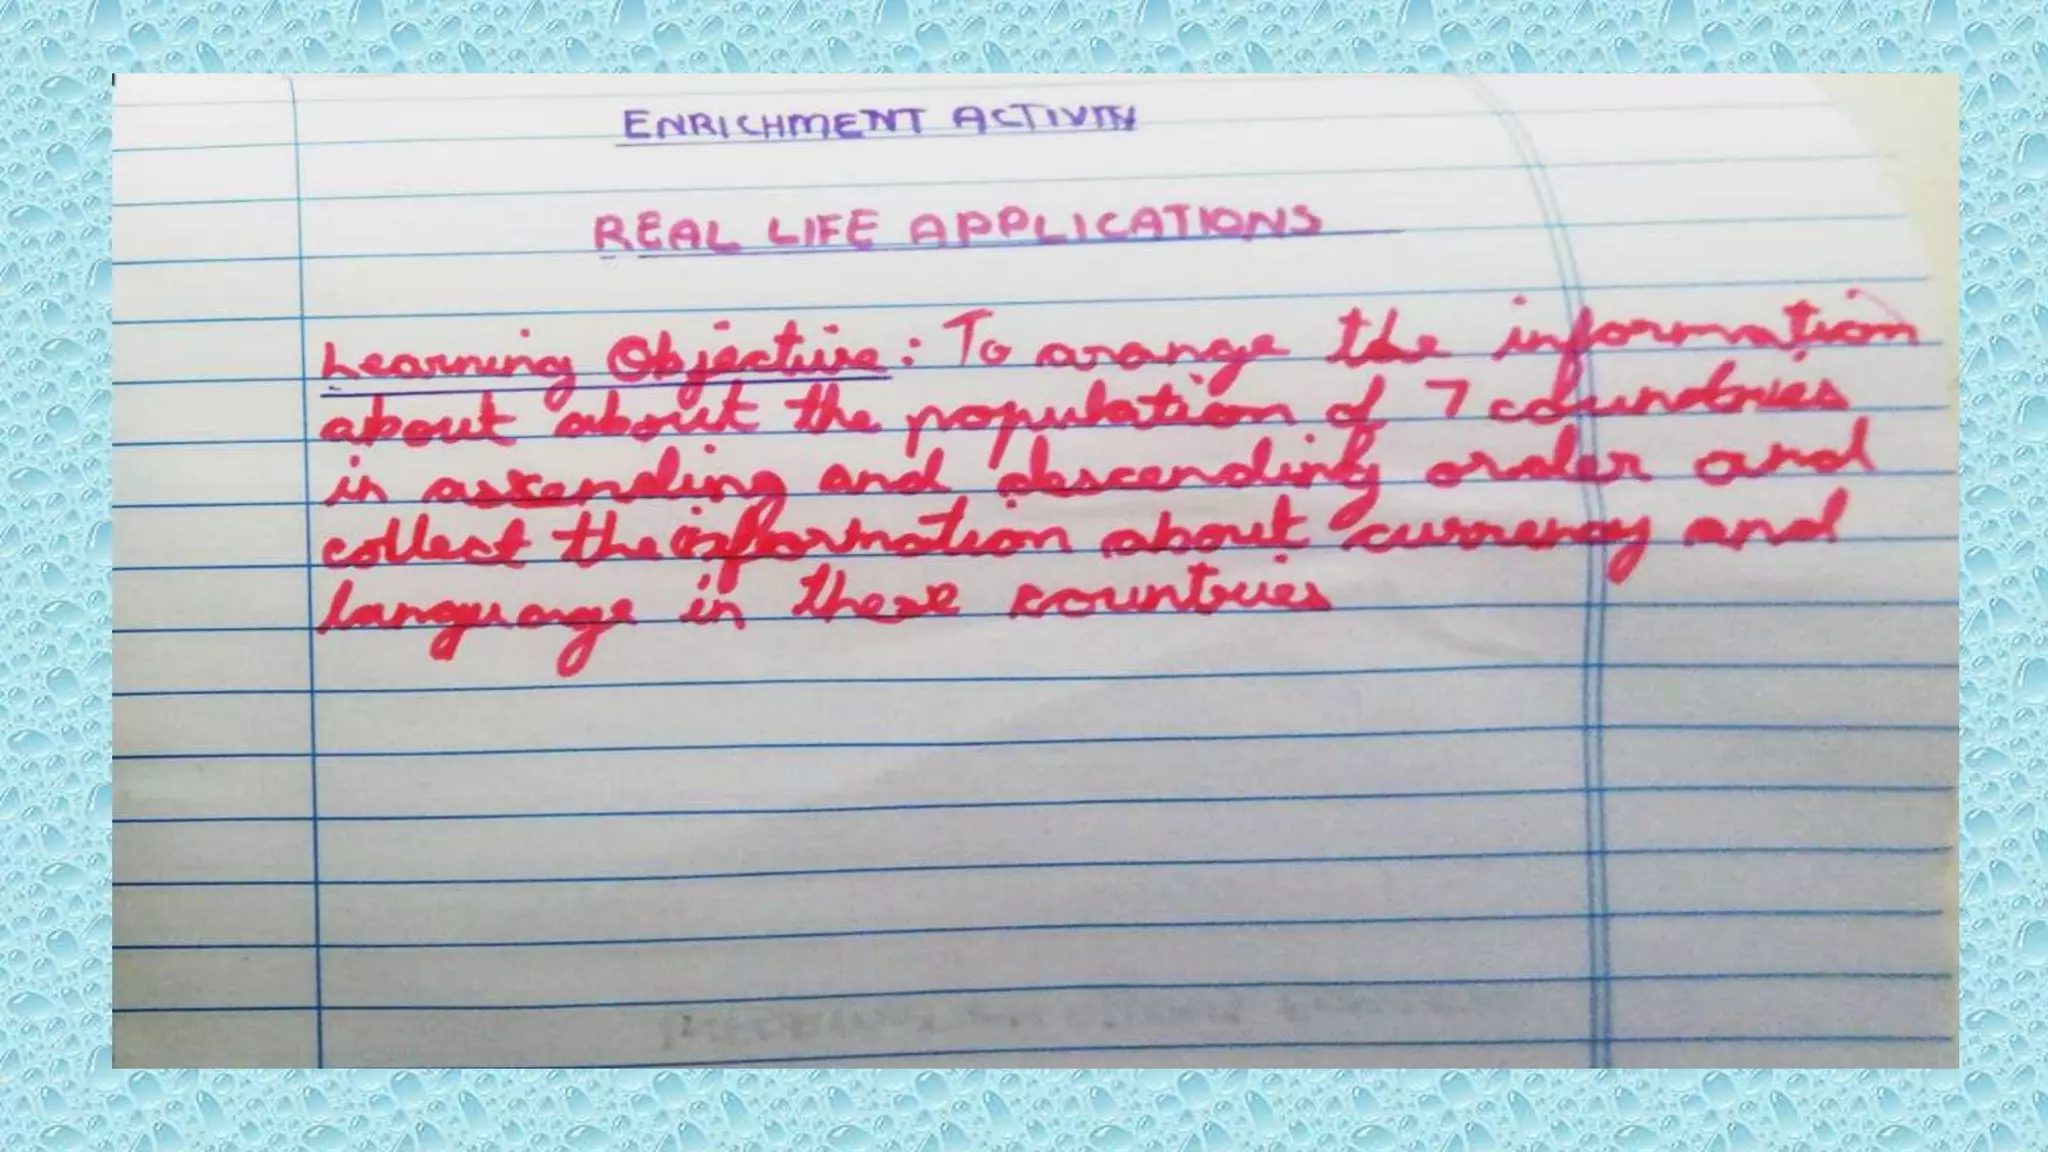 ENRICHMENT ACTIVITY
REAL LIFE APPLICATIONS
Learning Objective: To arange the information
about about the population of 7 coundries
in ascending and descending order and
collect the information about currency and
language in these countries